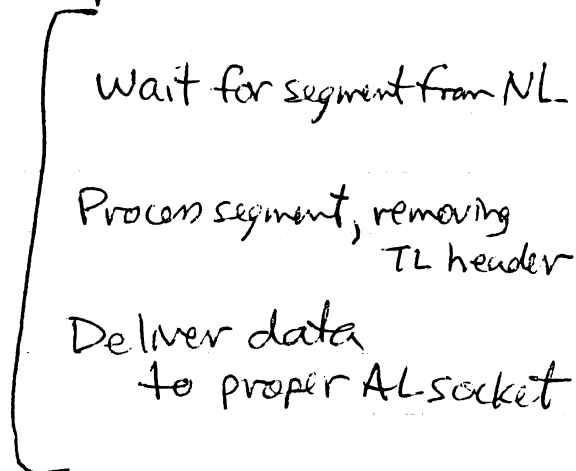 Wait for segment from NL
Process segment, removing
TL header
Deliver data
to proper AL socket